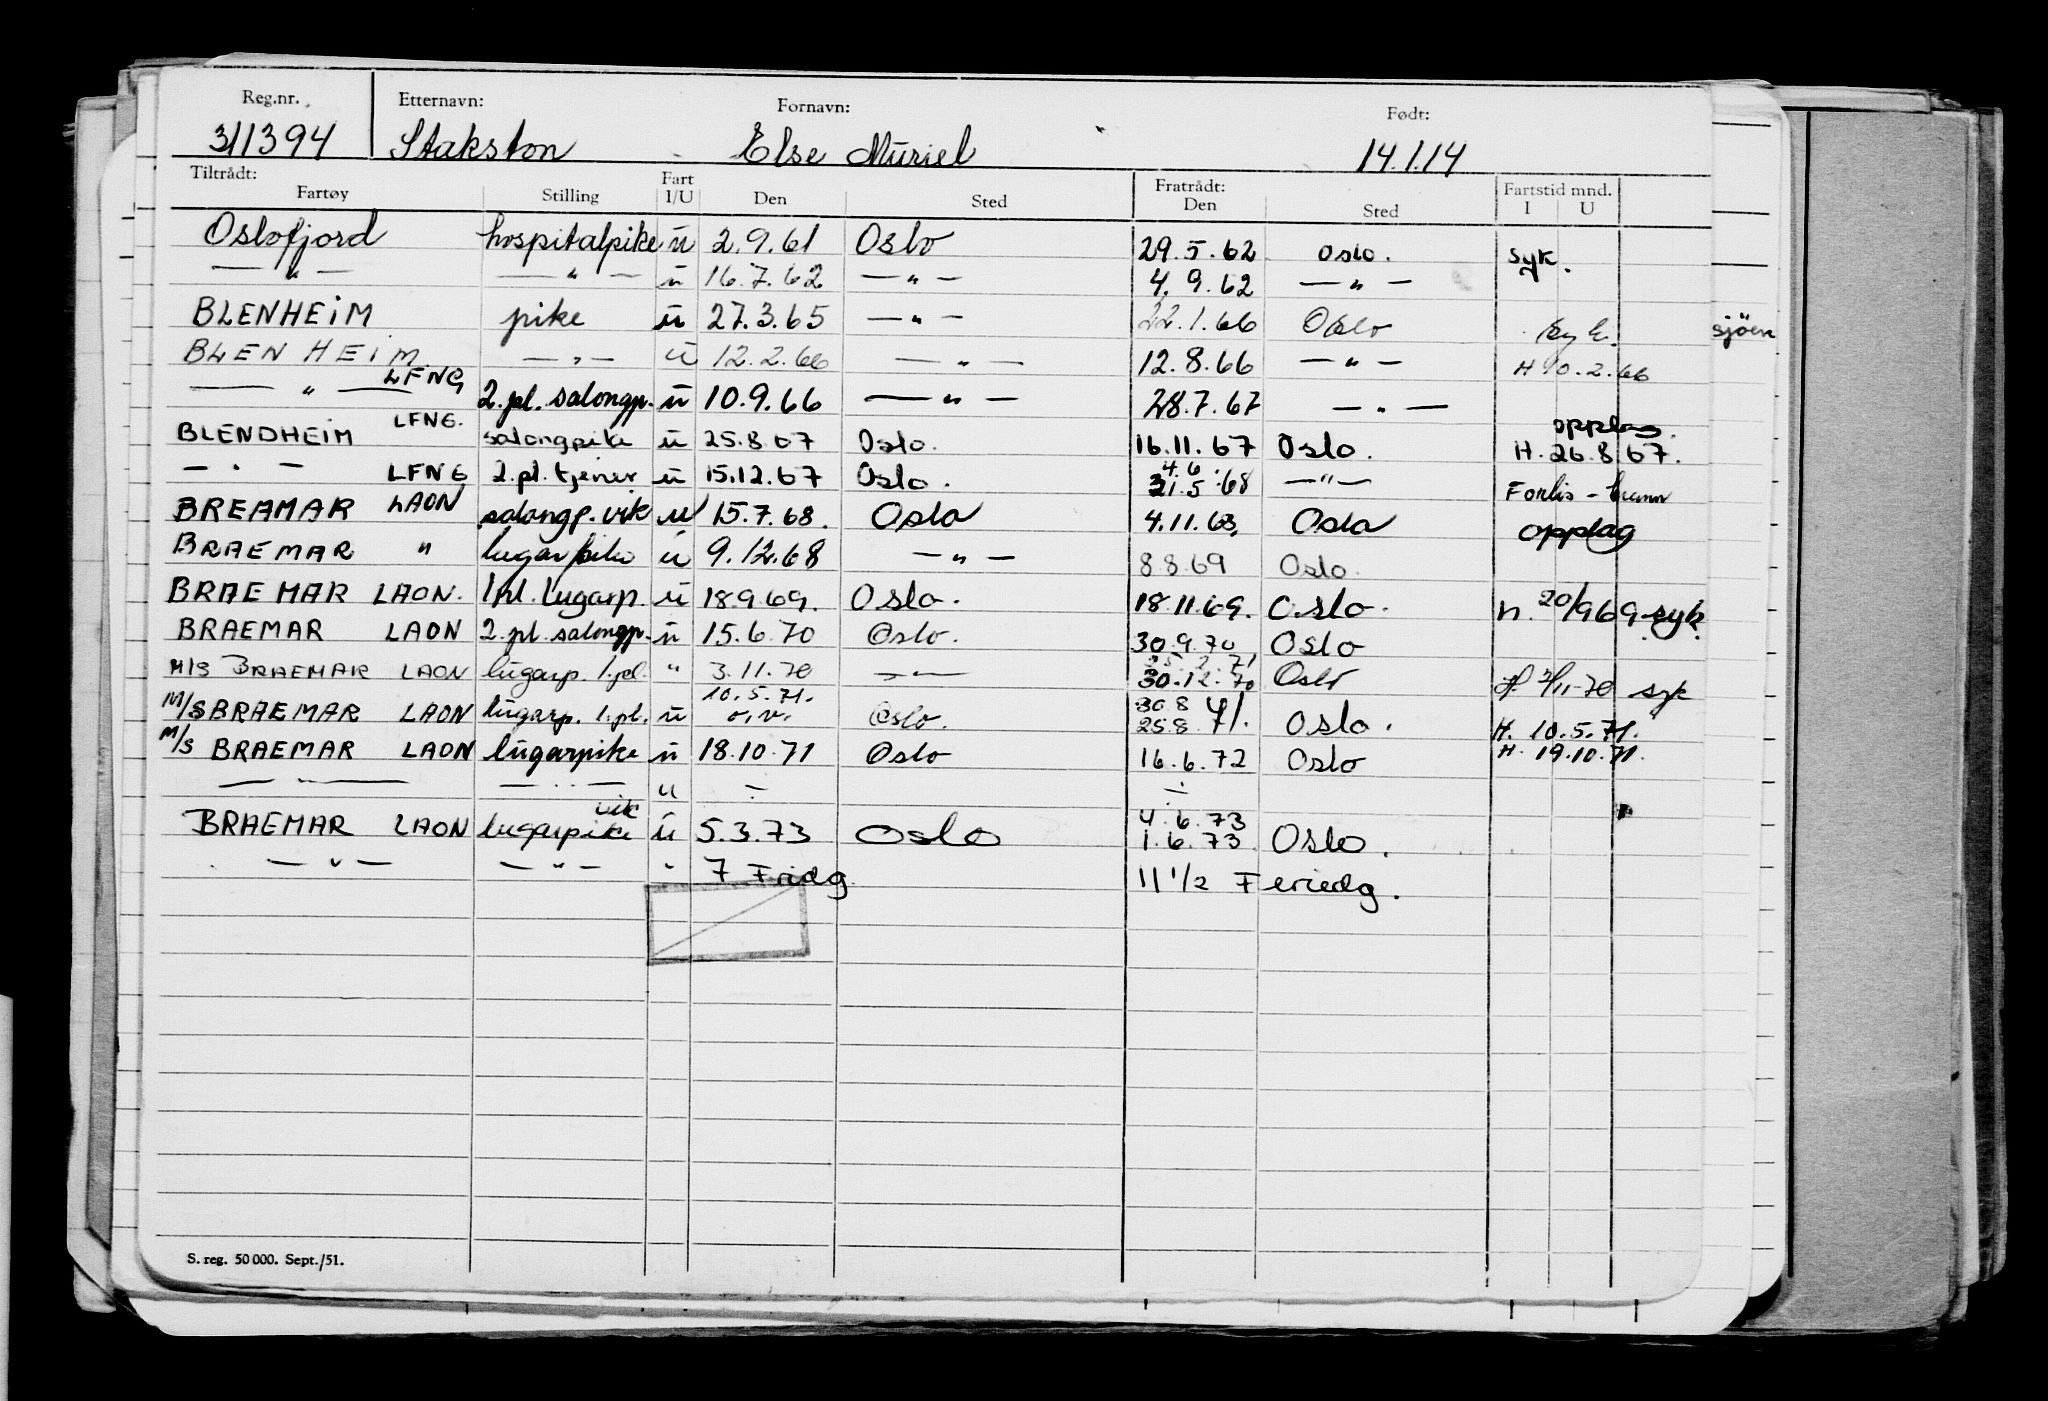 Reg.nr. Etternavn: Fornavn: Født:
311394 Stakston Else Muriel 14.1.14
Tiltrådt: Fartøy Stilling Fart I/U Den Sted Fratrådt: Den Sted Fartstid mnd. I U
Oslofjord hospitalpike u 2.9.61 Oslo 29.5.62 Oslo. syk.
— " — — " — u 16.7.62 — " — 4.9.62 — " —
BLENHEIM pike u 27.3.65 — " — 22.1.66 Oslo syk. sjöen
BLENHEIM — " — u 12.2.66 — " — 12.8.66 — " — H 10.2.66
— " — LFNG 2.pl. salongp. u 10.9.66 — " — 28.7.67 — " —
BLENDHEIM LFNG. salongpike u 25.8.67 Oslo. 16.11.67 Oslo. opplag. H. 26.8.67.
— " — LFNG 2.pl. tjener u 15.12.67 Oslo. 4.6. 31.5.68 — " — Forlis - brann
BREAMAR LAON salongp. vik u 15.7.68. Oslo 4.11.68. Oslo opplag
BRAEMAR " lugarpike u 9.12.68 — " — 8.8.69 Oslo.
BRAEMAR LAON. 1pl. lugarp. u 18.9.69. Oslo. 18.11.69. Oslo. H. 20/9 69 syk.
BRAEMAR LAON 2.pl. salongp. u 15.6.70 Oslo. 30.9.70 Oslo
M/S BRAEMAR LAON lugarp. 1.pl. " 3.11.70 — " — 30.12.70 Oslo H. 3/11-70 syk
M/S BRAEMAR LAON lugarp. 1.pl. u 10.5.71. o.v. Oslo. 30.8 25.8.71. Oslo. H. 10.5.71.
M/S BRAEMAR LAON lugarpike u 18.10.71 Oslo 16.6.72 Oslo H. 19.10.71.
— " — — " — u ÷ ÷
BRAEMAR LAON lugarpike vik u 5.3.73 Oslo 4.6.73 1.6.73 Oslo.
— " — — " — " 7 Fridg. 11 1/2 Feriedg.
S. reg. 50 000. Sept./51.